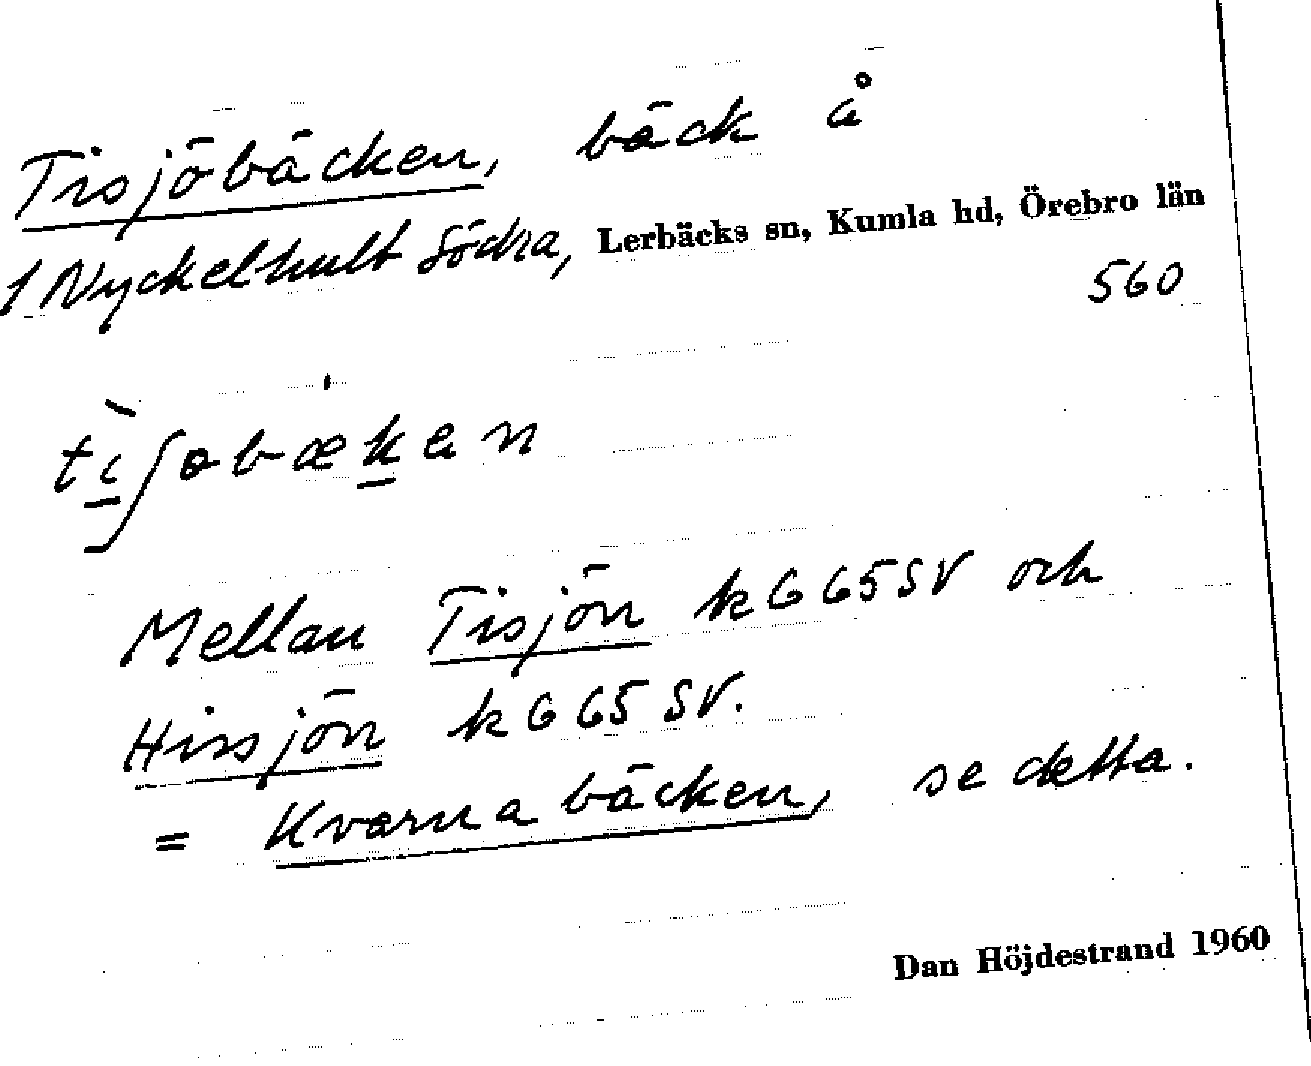 Tisjöbäcken, bäck å
1 Nyckelhult Södra, Lerbäcks sn, Kumla hd, Örebro län
560
tìʃobækan
Mellan Tisjön k G 65 SV och
Hissjön k G 65 SV.
= Kvarnabäcken, se detta.
Dan Höjdestrand 1960